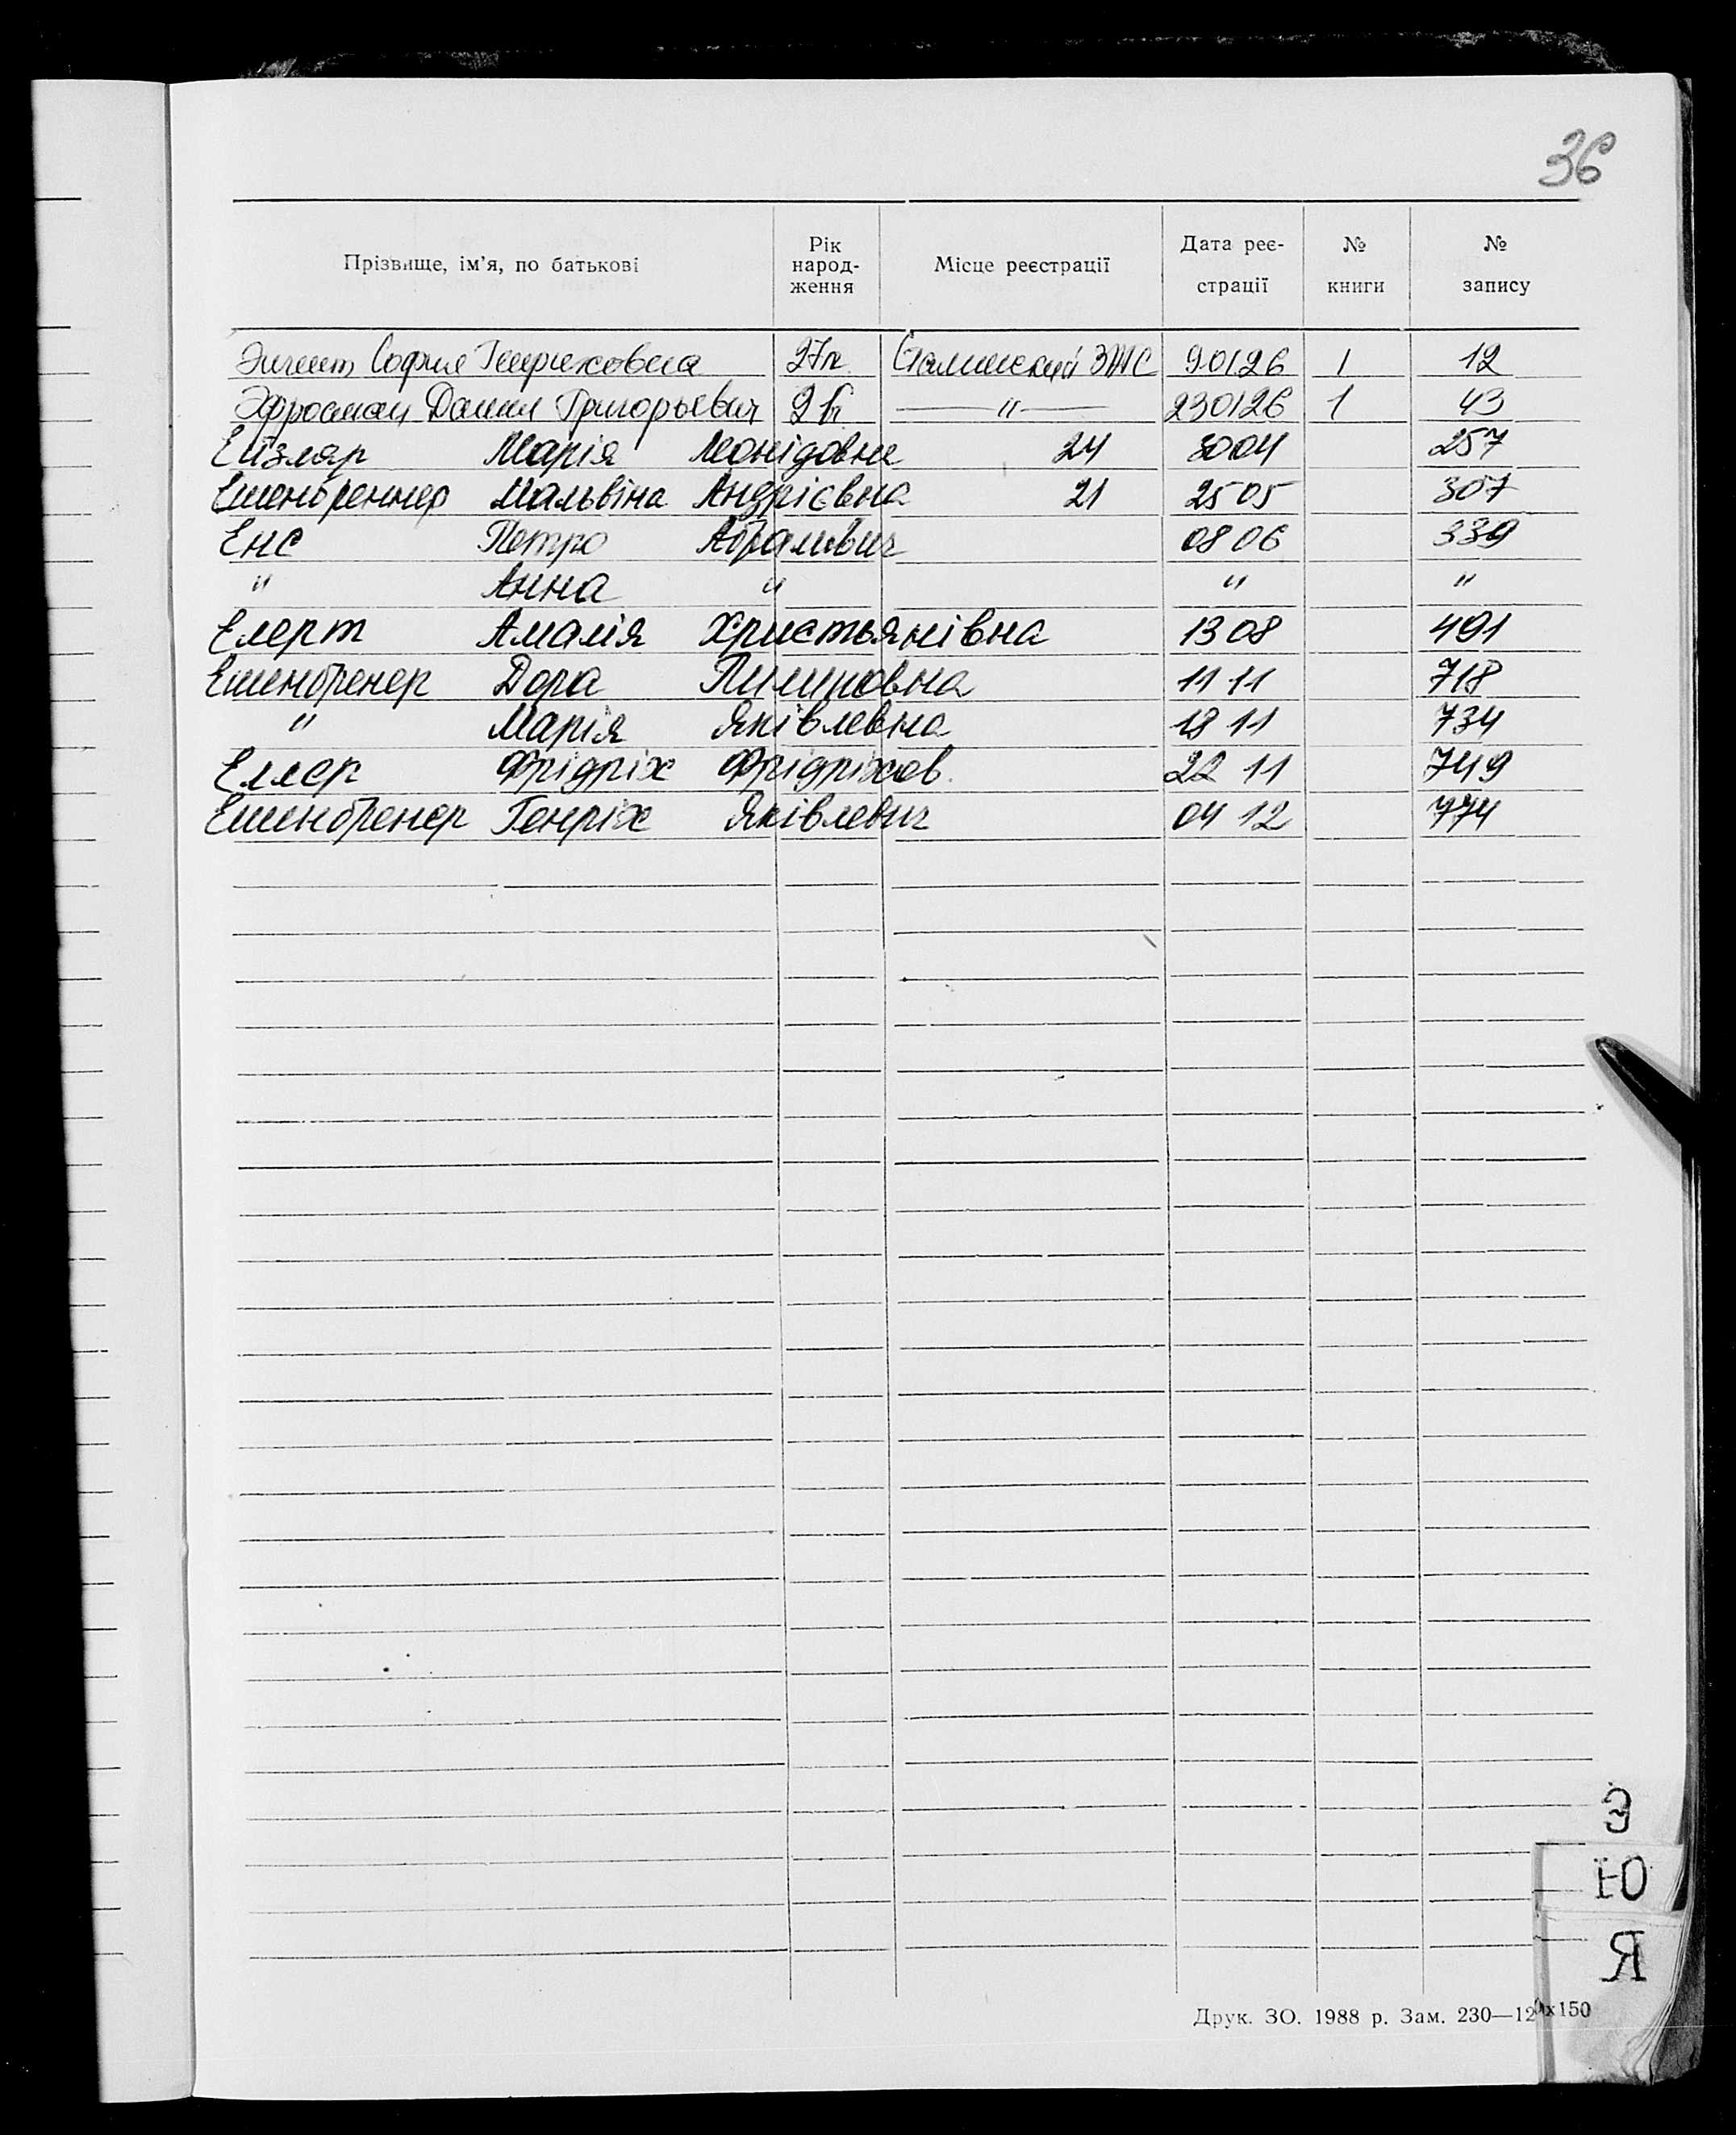 36
Прізвище, ім'я, по батькові Рік народ-ження Місце реєстрації Дата реє-страції № книги № запису
София Генриховна 27 Сталинский ЗАГС 90126 1 12
Эфросман Даниил Григорьевич —"— 230126 1 43
Ейзляр Марія Леонідовна 24 3004 257
Ешенбреннер Мальвіна Андрієвна 21 2505 307
Енс Петро Абрамович 0806 339
" Анна " " "
Елерт Амалія Христьянівна 1308 491
Ешенбренер Дора Пилиповна 11 11 718
" Марія Яківлевна 18 11 734
Еллер Фрідріх Фрідріхов. 22 11 749
Ешенбренер Генріх Яківлевич 04 12 774
Э
Ю
Я
Друк. ЗО. 1988 р. Зам. 230—120х150